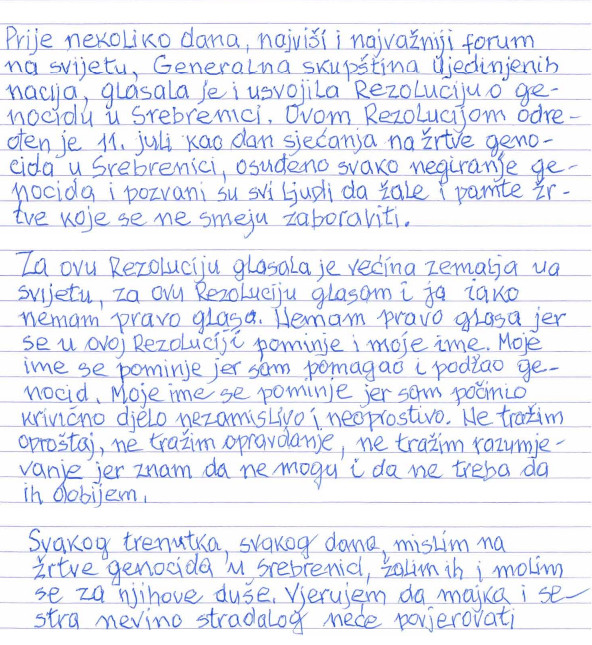 Prije nekoliko dana, najviši i najvažniji forum
na svijetu, Generalna skupština Ujedinjenih
nacija, glasala je i usvojila Rezoluciju o ge-
nocidu u Srebrenici. Ovom Rezolucijom odre-
đen je 11. juli kao dan sjećanja na žrtve geno-
cida u Srebrenici, osuđeno svako negiranje ge-
nocida i pozvani su svi ljudi da žale i pamte žr-
tve koje se ne smeju zaboraviti.
Za ovu Rezoluciju glasala je većina zemalja na
svijetu, za ovu Rezoluciju glasam i ja iako
nemam pravo glasa. Nemam pravo glasa jer
se u ovoj Rezoluciji pominje i moje ime. Moje
ime se pominje jer sam pomagao i podžao ge-
nocid. Moje ime se pominje jer sam počinio
krivično djelo nezamislivo i neoprostivo. Ne tražim
oproštaj, ne tražim opravdanje, ne tražim razumje-
vanje jer znam da ne mogu i da ne treba da
ih dobijem.
Svakog trenutka, svakog dana, mislim na
žrtve genocida u Srebrenici, žalim ih i molim
se za njihove duše. Vjerujem da majka i se-
stra nevino stradalog neće povjerovati